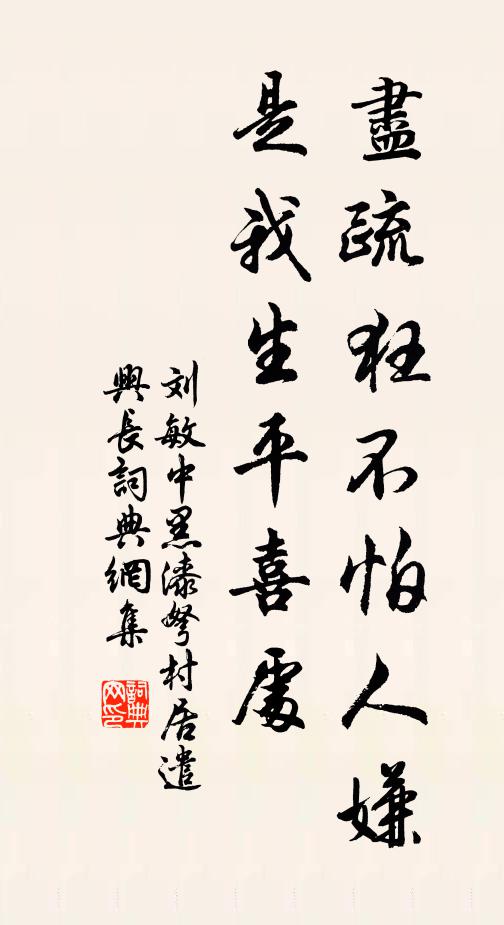 盡疏狂不怕人嫌
是我生平喜處
刘敏中黑漆弩村居遣
興長詞典網集
詞典網印